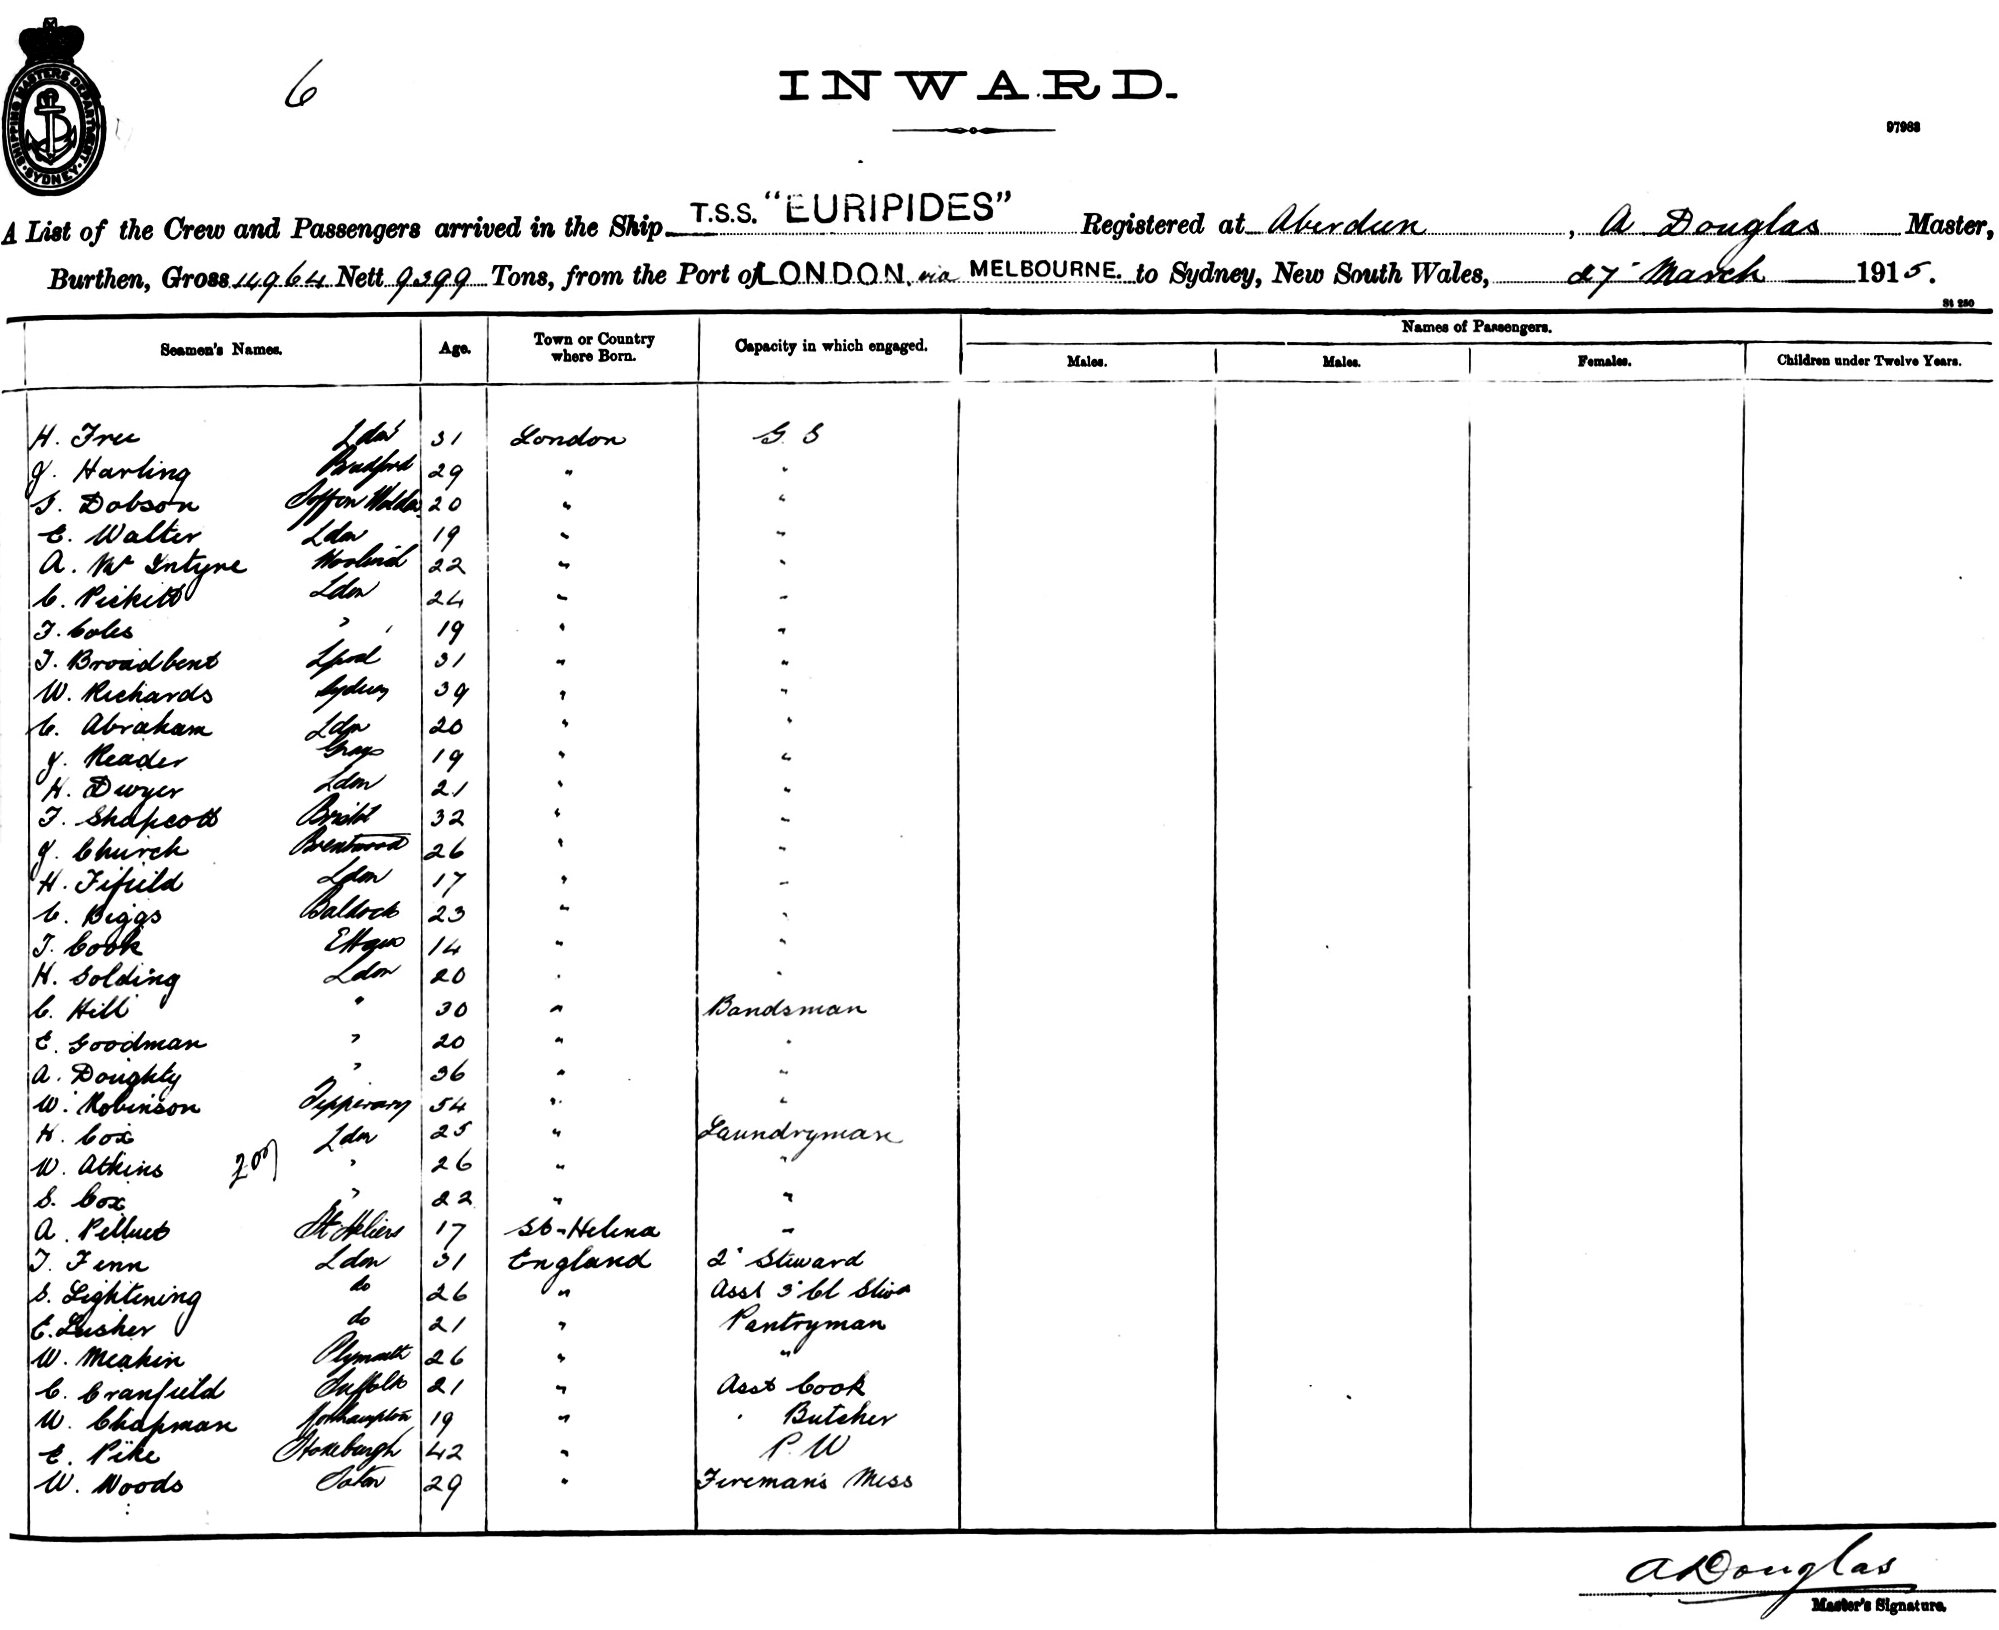 SHIPPING MASTERS DEPARTMENT. SYDNEY.
6
INWARD.
97983
A List of the Crew and Passengers arrived in the Ship T.S.S. "EURIPIDES" Registered at Aberdeen, A Douglas Master,
Burthen, Gross 14964 Nett 9399 Tons, from the Port of LONDON. via MELBOURNE. to Sydney, New South Wales, 27 March 1915.
St 250
Names of Passengers.
Seamen's Names. Age. Town or Country where Born. Capacity in which engaged. Males. Males. Females. Children under Twelve Years.
H. Free Ldon 31 London G. S
J. Harling Bradford 29 " "
T. Dobson Saffron Walden 20 " "
E. Walter Ldon 19 " "
A. Mc Intyre Woolwich 22 " "
C. Pickett Ldon 24 " "
F. Coles " 19 " "
T. Broadbent Lpool 31 " "
W. Richards Sydney 39 " "
C. Abraham Ldon 20 " "
J. Reader Grays 19 " "
H. Dwyer Ldon 21 " "
F. Shapcott Bristol 32 " "
J. Church Brentwood 26 " "
H. Fifield Ldon 17 " "
C. Biggs Baldock 23 " "
T. Cook 14 " "
H. Golding Ldon 20 " "
C. Hill " 30 " Bandsman
E. Goodman " 20 " "
A. Doughty " 36 " "
W. Robinson Tipperary 54 " "
H. Cox Ldon 25 " Laundryman
W. Atkins " 26 " "
S. Cox " 22 " "
A. Pelluet St Heliers 17 St-Helena "
T. Fenn Ldon 31 England 2" Steward
S. Lightening do 26 " Asst 3" Cl Stwd
E. Lusher do 21 " Pantryman
W. Meakin Plymouth 26 " "
C. Cranfield Suffolk 21 " Asst Cook
W. Chapman Northampton 19 " " Butcher
E. Pike 42 " P. W
W. Woods 29 " Fireman's Mess
A Douglas
Master's Signature.